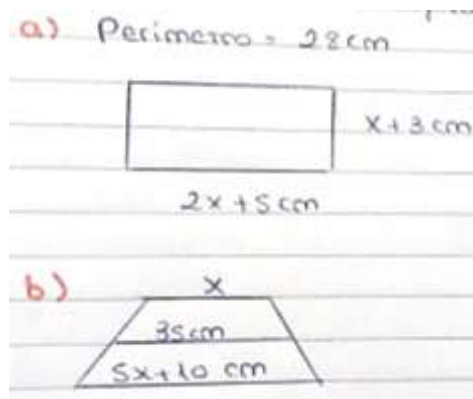 a) Perimetro = 28cm
x + 3 cm
2x + 5 cm
b) x
35cm
5x+10 cm